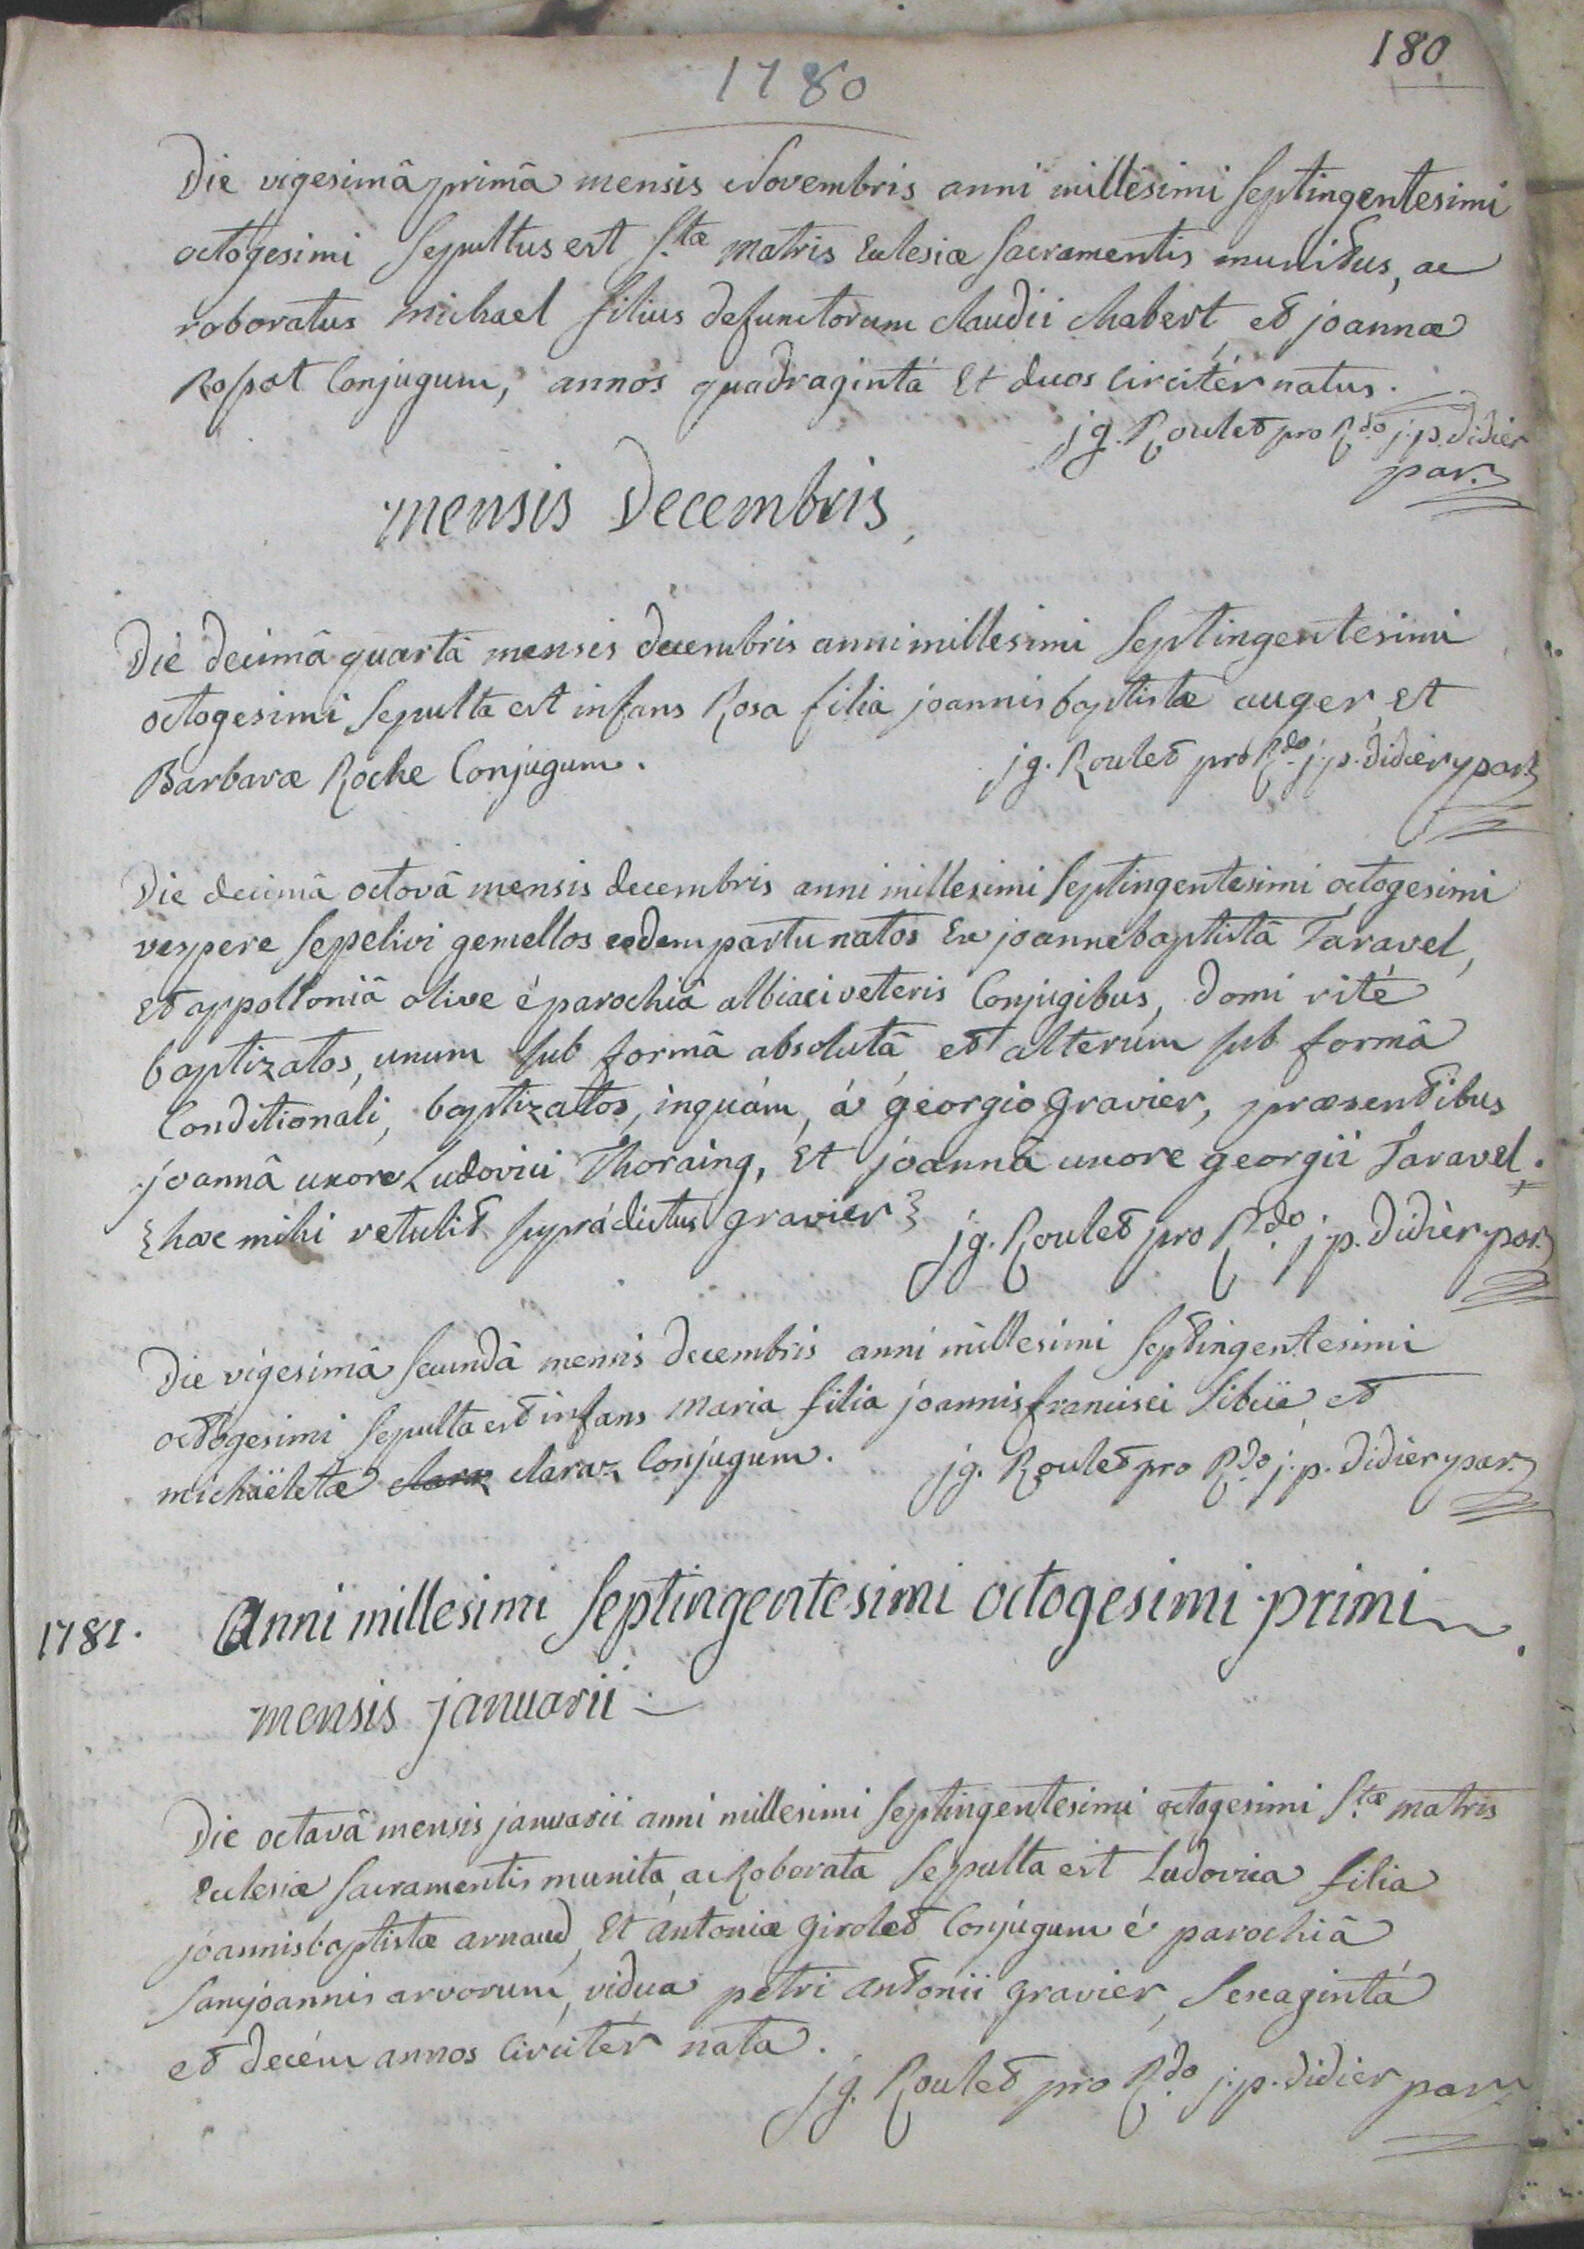 180
1780
Die vigesimâ primâ mensis Novembris anni millesimi septingentesimi
octogesimi sepultus est S.tæ Matris Eclesiæ sacramentis munitus, ac
roboratus Michael filius defunctorum claudii chabert, et joannæ
Rapat Conjugum, annos quadragintá Et duos circitér natus.
jg. Roulet pro R.do j. p. didier
par.
mensis Decembris,
Die decimâ quartâ mensis decembris anni millesimi septingentesimi
octogesimi sepulta est infans Rosa filia joannis baptistæ auger, Et
Barbaræ Roche Conjugum.
jg. Roulet pro R.do j. p. didier par.
Die decimâ octavâ mensis decembris anni millesimi septingentesimi octogesimi
vespere sepelivi gemellos eodem partu natos Ex joanne baptistâ Taravel,
Et appolloniâ olive é parochiâ albiaci veteris Conjugibus, domi rité
baptizatos, unum sub formâ absolutâ, et alterum sub formâ
Conditionali, baptizatos, inquám, á georgio gravier, præsentibus
joannâ uxore Ludovici Thoraing, Et joannâ uxore georgii Taravel.
{hæc mihi retulit suprádictus gravier}
jg. Roulet pro R.do j. p. didier par.
Die vigesimâ secundâ mensis decembris anni millesimi septingentesimi
octogesimi sepulta est infans Maria filia joannis francisci Sibue, et
michaëletæ claraz claraz Conjugum.
jg. Roulet pro R.do j. p. didier par.
1781.
Anni millesimi septingentesimi octogesimi primi
mensis januarii
Die octavâ mensis januarii anni millesimi septingentesimi octogesimi S.tæ matris
Eclesiæ sacramentis munita, ac Roborata sepulta est Ludovica filia
joannis baptistæ arnaud, Et antoniæ girolet Conjugum é parochiâ
Sanjoannis arvorum, vidua petri antonii gravier, sexagintá
et decém annos Circitér nata.
jg. Roulet pro R.do j. p. didier par.